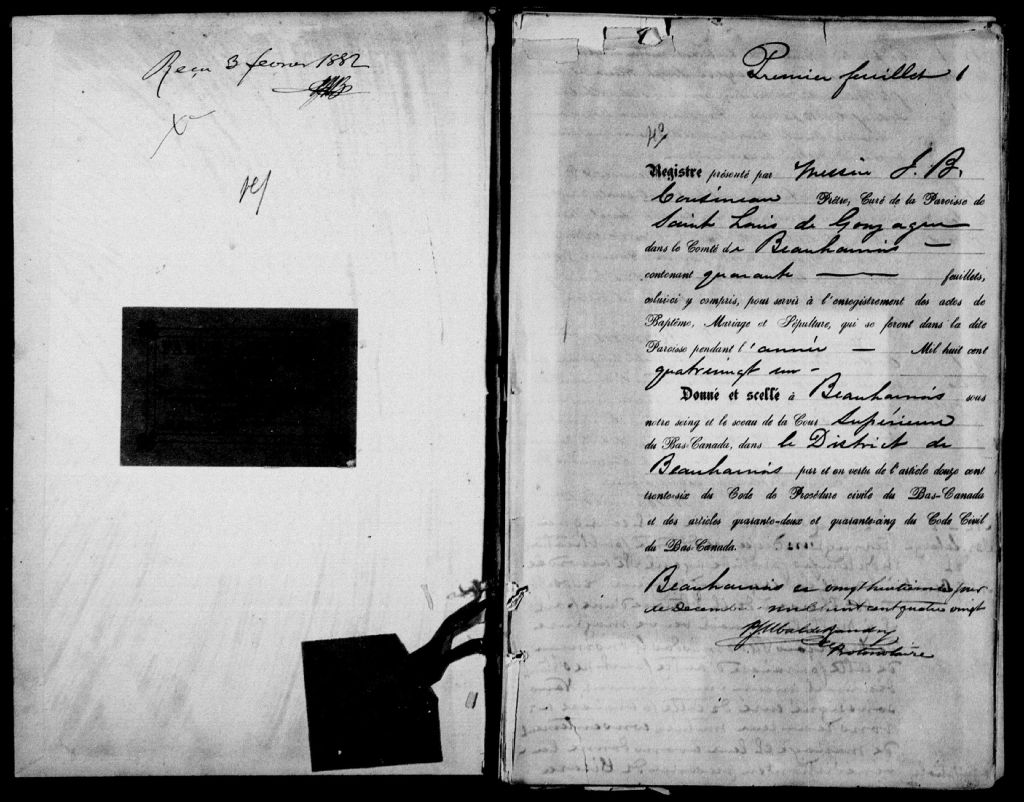 Reçu 3 fevrier 1882
Premier feuillet 1
Registre présenté par Messire J. B.
Cousineau Prêtre, Curé de la Paroisse de
Saint Louis de Gonzague
dans le Comté de Beauharnois —
contenant quarante — feuillets,
celui-ci y compris, pour servir à l'enregistrement des actes de
Baptême, Mariage et Sépulture, qui se feront dans la dite
Paroisse pendant l'année — Mil huit cent
quatrevingt un -
Donné et scellé à Beauharnois sous
notre seing et le sceau de la Cour Supérieure
du Bas-Canada, dans le District de
Beauharnois par et en vertu de l'article douze cent
trente-six du Code de Procédure civile du Bas-Canada
et des articles quarante-deux et quarante-cinq du Code Civil
du Bas-Canada.
Beauharnois ce vingt huitieme jour
de Decembre mil huit cent quatre vingt
Protonotaire